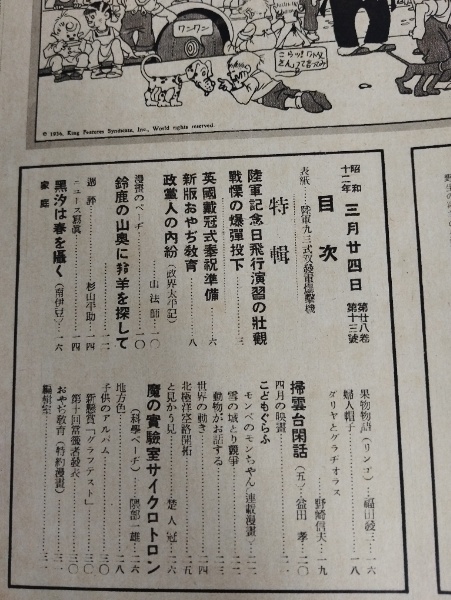 ワンワン
© 1936, King Features Syndicate, Inc., World rights reserved.
昭和十二年 三月廿四日 第廿八卷 第十三號
目次
表紙……陸軍九三式双發重爆擊機
特輯
陸軍記念日飛行演習の壯觀
戰慄の爆彈投下……三
英國戴冠式奉祝準備……六
新版おやぢ敎育……八
政黨人の內紛(政界太平記)
山法師……一〇
漫畫のページ……
鈴鹿の山奧に羚羊を探して……一二
週評……杉山平助……一四
ニュース寫眞……一四
黑汐は春を囁く(南伊豆)……一六
家庭
果物物語(リンゴ)…福田發……六
婦人帽子……一八
ダリヤとグラヂオラス
野崎信夫……一九
掃雲台閑話(五)…益田孝……二〇
四月の映畫……
こどもぐらふ
モンペのモンちやん(連載漫畫)……二二
雪の城とり競爭……
動物がお話する……
世界の動き……二四
北極洋空路開拓……二五
と見かう見……楚人冠……二六
魔の實驗室サイクロトロン
(科學ページ)……隈部一雄……二六
地方色……二八
子供のアルバム……三〇
新懸賞「グラフテスト」……三〇
第十回當選者發表……三〇
おやぢ敎育(特約漫畫)……三一
編輯室……三一